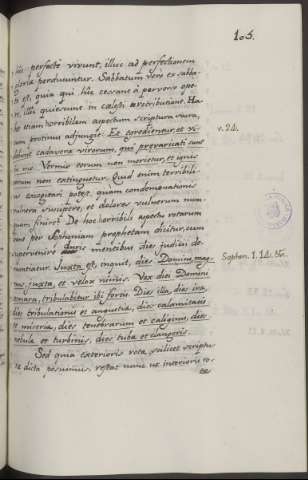 105.
hic perfectè vivunt, illuc ad perfectionem
gloriæ perducuntur. Sabbatum verò ex sabba-
to est, quia qui hic cessant à perverso ope-
re, illic quiescunt in cælesti retributione. Ha-
bet etiam horribilem aspectum scriptura sacra,
cum protinus adjungit: Et egredientur, et vi-
debunt cadavera virorum, qui prævaricati sunt
in me. Vermis eorum non morietur, et ignis
eorum non extinguetur. Quid enim terribili-
us excogitari potest, quàm condemnationis
vulnera suscipere, et dolores vulnerum num-
quam finire? De hoc horribili aspectu rotarum
per Sophoniam prophetam dicitur, cum
supervenire duris mentibus dies judicii de-
nuntiatur. Juxta est, inquit, dies Domini mag-
nus, juxta, et velox nimis. Vox diei Domini
amara, tribulabitur ibi fortis. Dies illa, dies iræ,
dies tribulationis et angustiæ, dies calamitatis
et miseriæ, dies tenebrarum et caliginis, dies
nebulæ et turbinis, dies tubæ et clangoris.
Sed quia exterioris rota, scilicet scriptu-
ræ dicta posuimus, restat nunc ut interioris ro-
tæ
v. 24.
Sophon. 1. 14. &c.